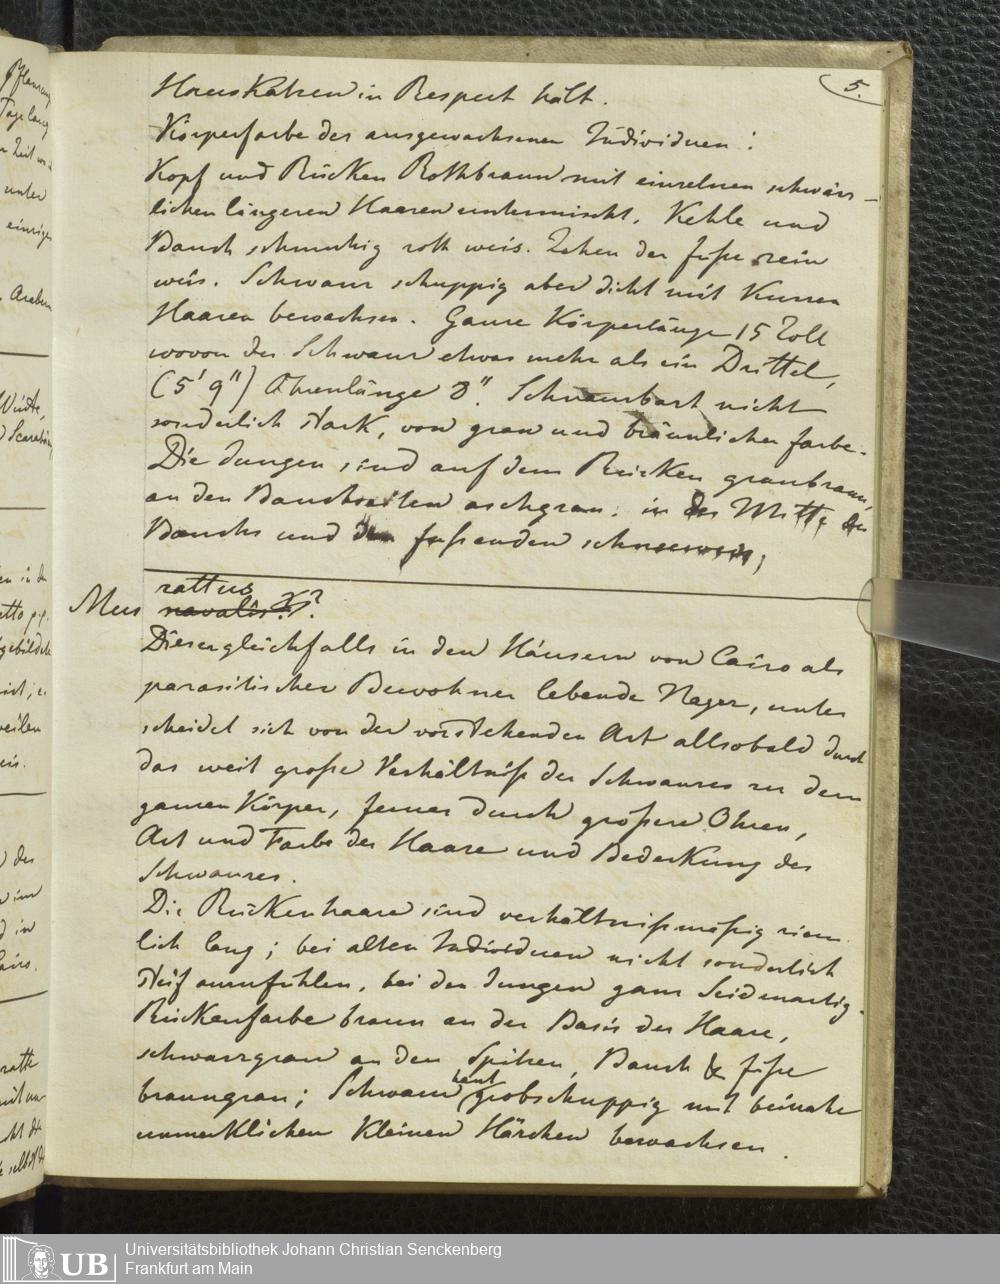 5.
HausKatzen in Respect hält.
Körperfarbe des ausgewachsenen Individuen:
Kopf und Rücken Rothbraun mit einzelnen schwärz-
lichen längeren Haaren untermischt. Kehle und
Bauch schmutzig roth weis. Zehen der füße rein
weis. Schwanz schuppig aber dicht mit Kurzen
Haaren bewachsen. Ganze Körperlänge 15 Zoll
wovon der Schwanz etwas mehr als ein Drittel,
(5' 9") Ohrenlänge 8". Schnauzbart nicht
sonderlich stark, von grau und bräunlicher farbe.
Die Jungen sind auf dem Rücken graubraun,
an den Bauchseiten aschgrau; in der Mitte des
Bauchs und den fußenden schneeweis;
rattus
Mus navalis?. ?
Dieser gleichfalls in den Häusern von Cairo als
parasitischer Bewohner lebende Nager, unter
scheidet sich von der vorstehenden Art allsobald durch
das weit große Verhältniß des Schwanzes zu dem
ganzen Körper, ferner durch größere Ohren,
Art und Farbe der Haare und Bedeckung des
Schwanzes.
Die Rückenhaare sind verhältnißmäßig ziem
lich lang; bei alten Individuen nicht sonderlich
steif anzufühlen, bei den Jungen ganz Seidenartig.
Rückenfarbe braun an der Basis der Haare,
schwarzgrau an den Spitzen, Bauch & füße
braungrau; Schwanz haut grobschuppig mit beinahe
unmerklichen Kleinen Härchen bewachsen.
UB
Universitätsbibliothek Johann Christian Senckenberg
Frankfurt am Main